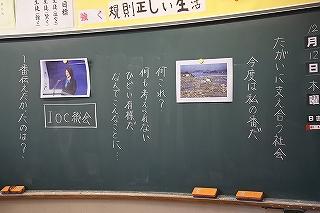 目標
強く 規則正しい生活
12月12日木曜
たがいに支え合う社会
今度は私の番だ
何これ?
何も考えられない
ひどい有様だ
なんてことに…
IOC総会
1番伝えたかったのは?